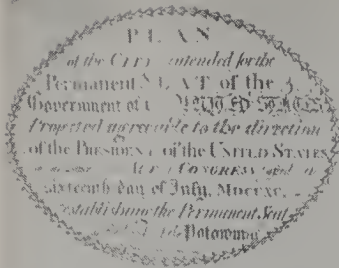 PLAN
of the CITY intended for the
Permanent SEAT of the
Government of t UNITED STATES
Projected agreeable to the direction
of the PRESIDENT of the UNITED STATES
ACT CONGRESS
sixteenth day of July, MDCCXC,
establishing the Permanent Seat
Potowmac